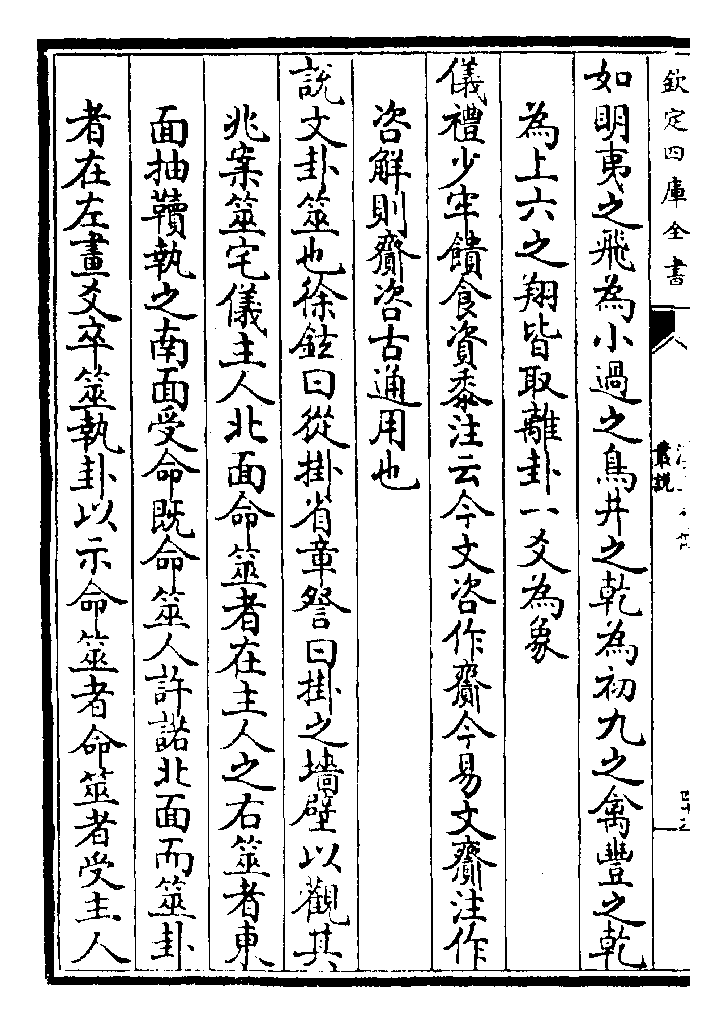 欽定四庫全書
叢說
如明夷之飛為小過之鳥井之乾為初九之禽豐之乾
為上六之翔皆取離卦一爻為象
儀禮少牢饋食資黍注云今文咨作齎今易文齎注作
咨解則齎咨古通用也
說文卦筮也徐鉉曰從掛省章詧曰掛之墻壁以觀其
兆案筮宅儀主人北面命筮者在主人之右筮者東
面抽韇執之南面受命既命筮人許諾北面而筮卦
者在左畫爻卒筮執卦以示命筮者命筮者受主人